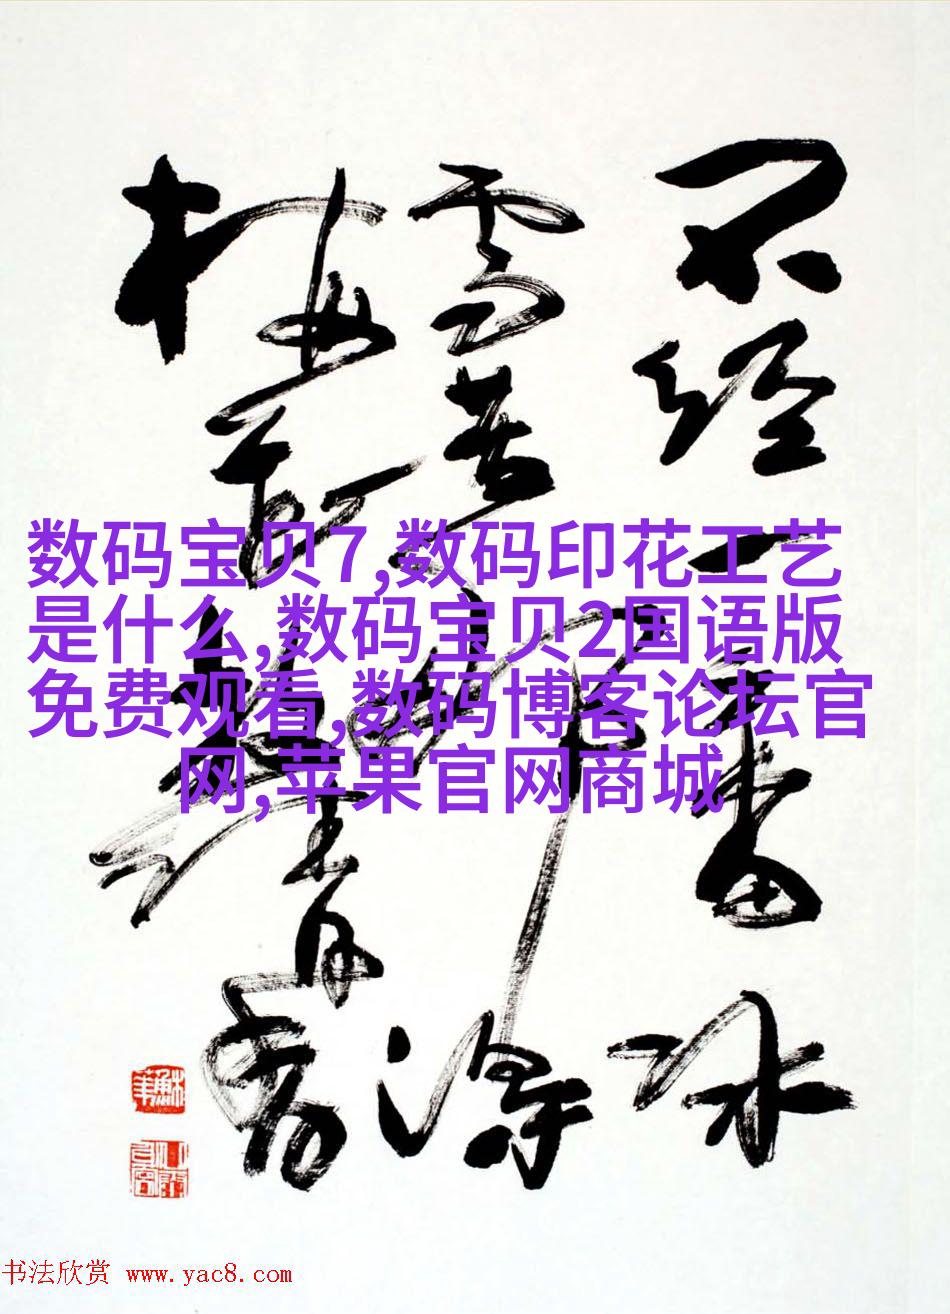 不经一番冰
雪苦那得
梅花放清香
数码宝贝7,数码印花工艺
是什么,数码宝贝2国语版
免费观看,数码博客论坛官
网,苹果官网商城
书法欣赏 www.yac8.com